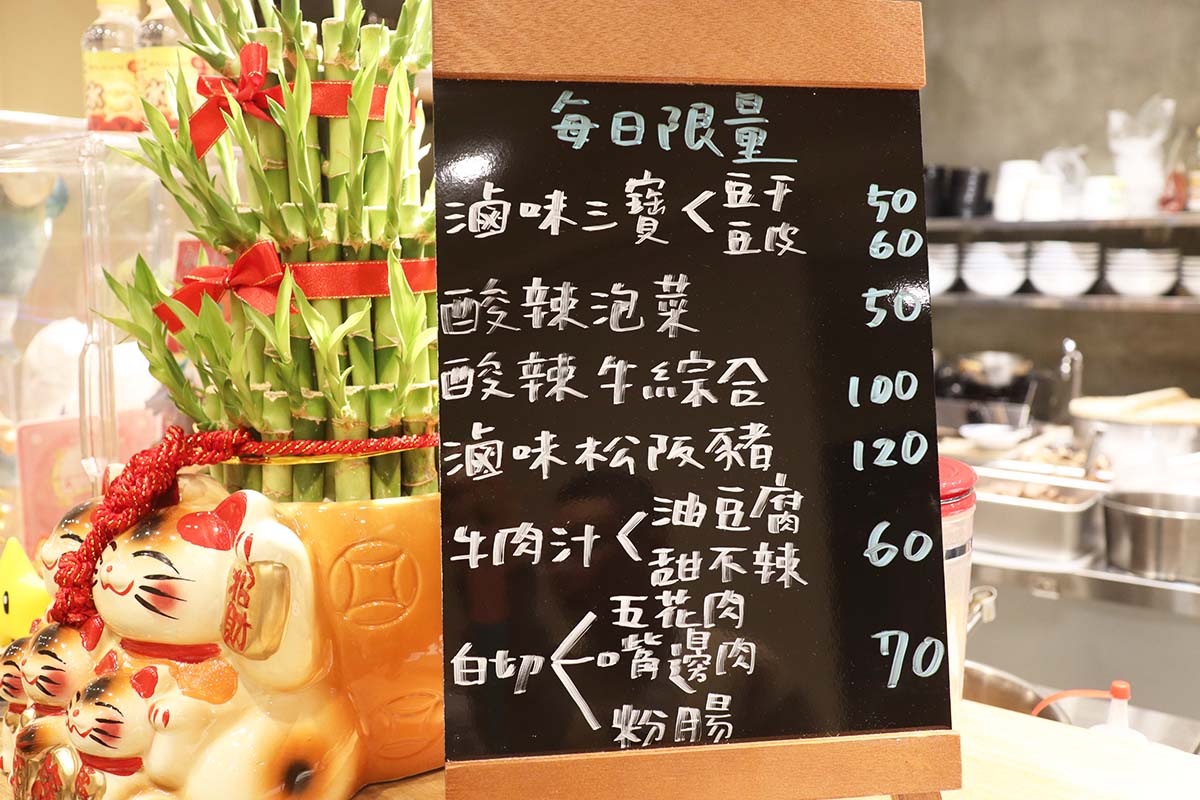 每日限量
滷味三寶<豆干 50
豆皮 60
酸辣泡菜 50
酸辣牛綜合 100
滷味松阪豬 120
牛肉汁<油豆腐
甜不辣 60
五花肉
白切 嘴邊肉 70
粉腸
招財